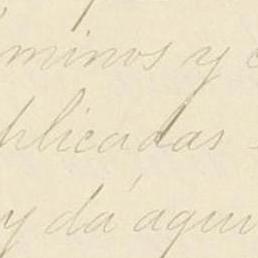 minos y
blicadas
y dá aqui